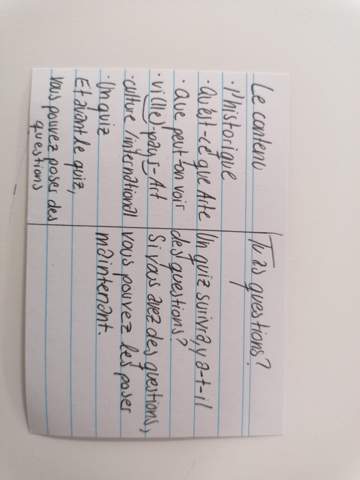 Le contenu
· l'historique
· Qu'est-ce que Arte
· Que peut-on voir
· vi(lle)-pays-Art
· culture/international
· Un quiz
Et avant le quiz,
vous pouvez poser des
questions
Tu as questions?
Un quiz suivra, y a-t-il
des questions?
Si vous avez des questions,
vous pouvez les poser
maintenant.